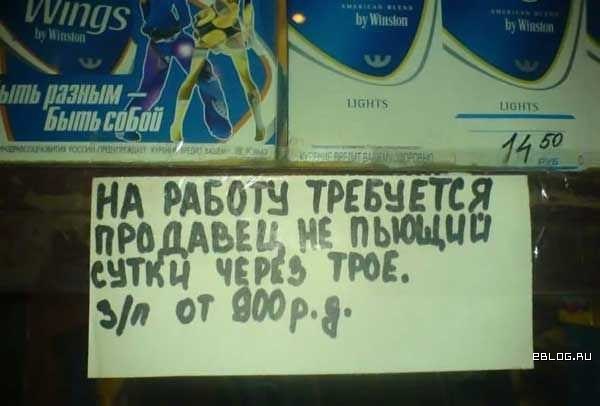 Wings
by Winston
ыть разным –
Быть собой
AMERICAN BLEND
by Winston
LIGHTS
AMERICAN BLEND
by Winston
LIGHTS
14 50
РУБ
КУРЕНИЕ ВРЕДИТ ВАШЕМУ ЗДОРОВЬЮ
НА РАБОТУ ТРЕБУЕТСЯ
ПРОДАВЕЦ НЕ ПЬЮЩИЙ
СУТКИ ЧЕРЕЗ ТРОЕ.
З/П ОТ 900 р.д.
2BLOG.RU